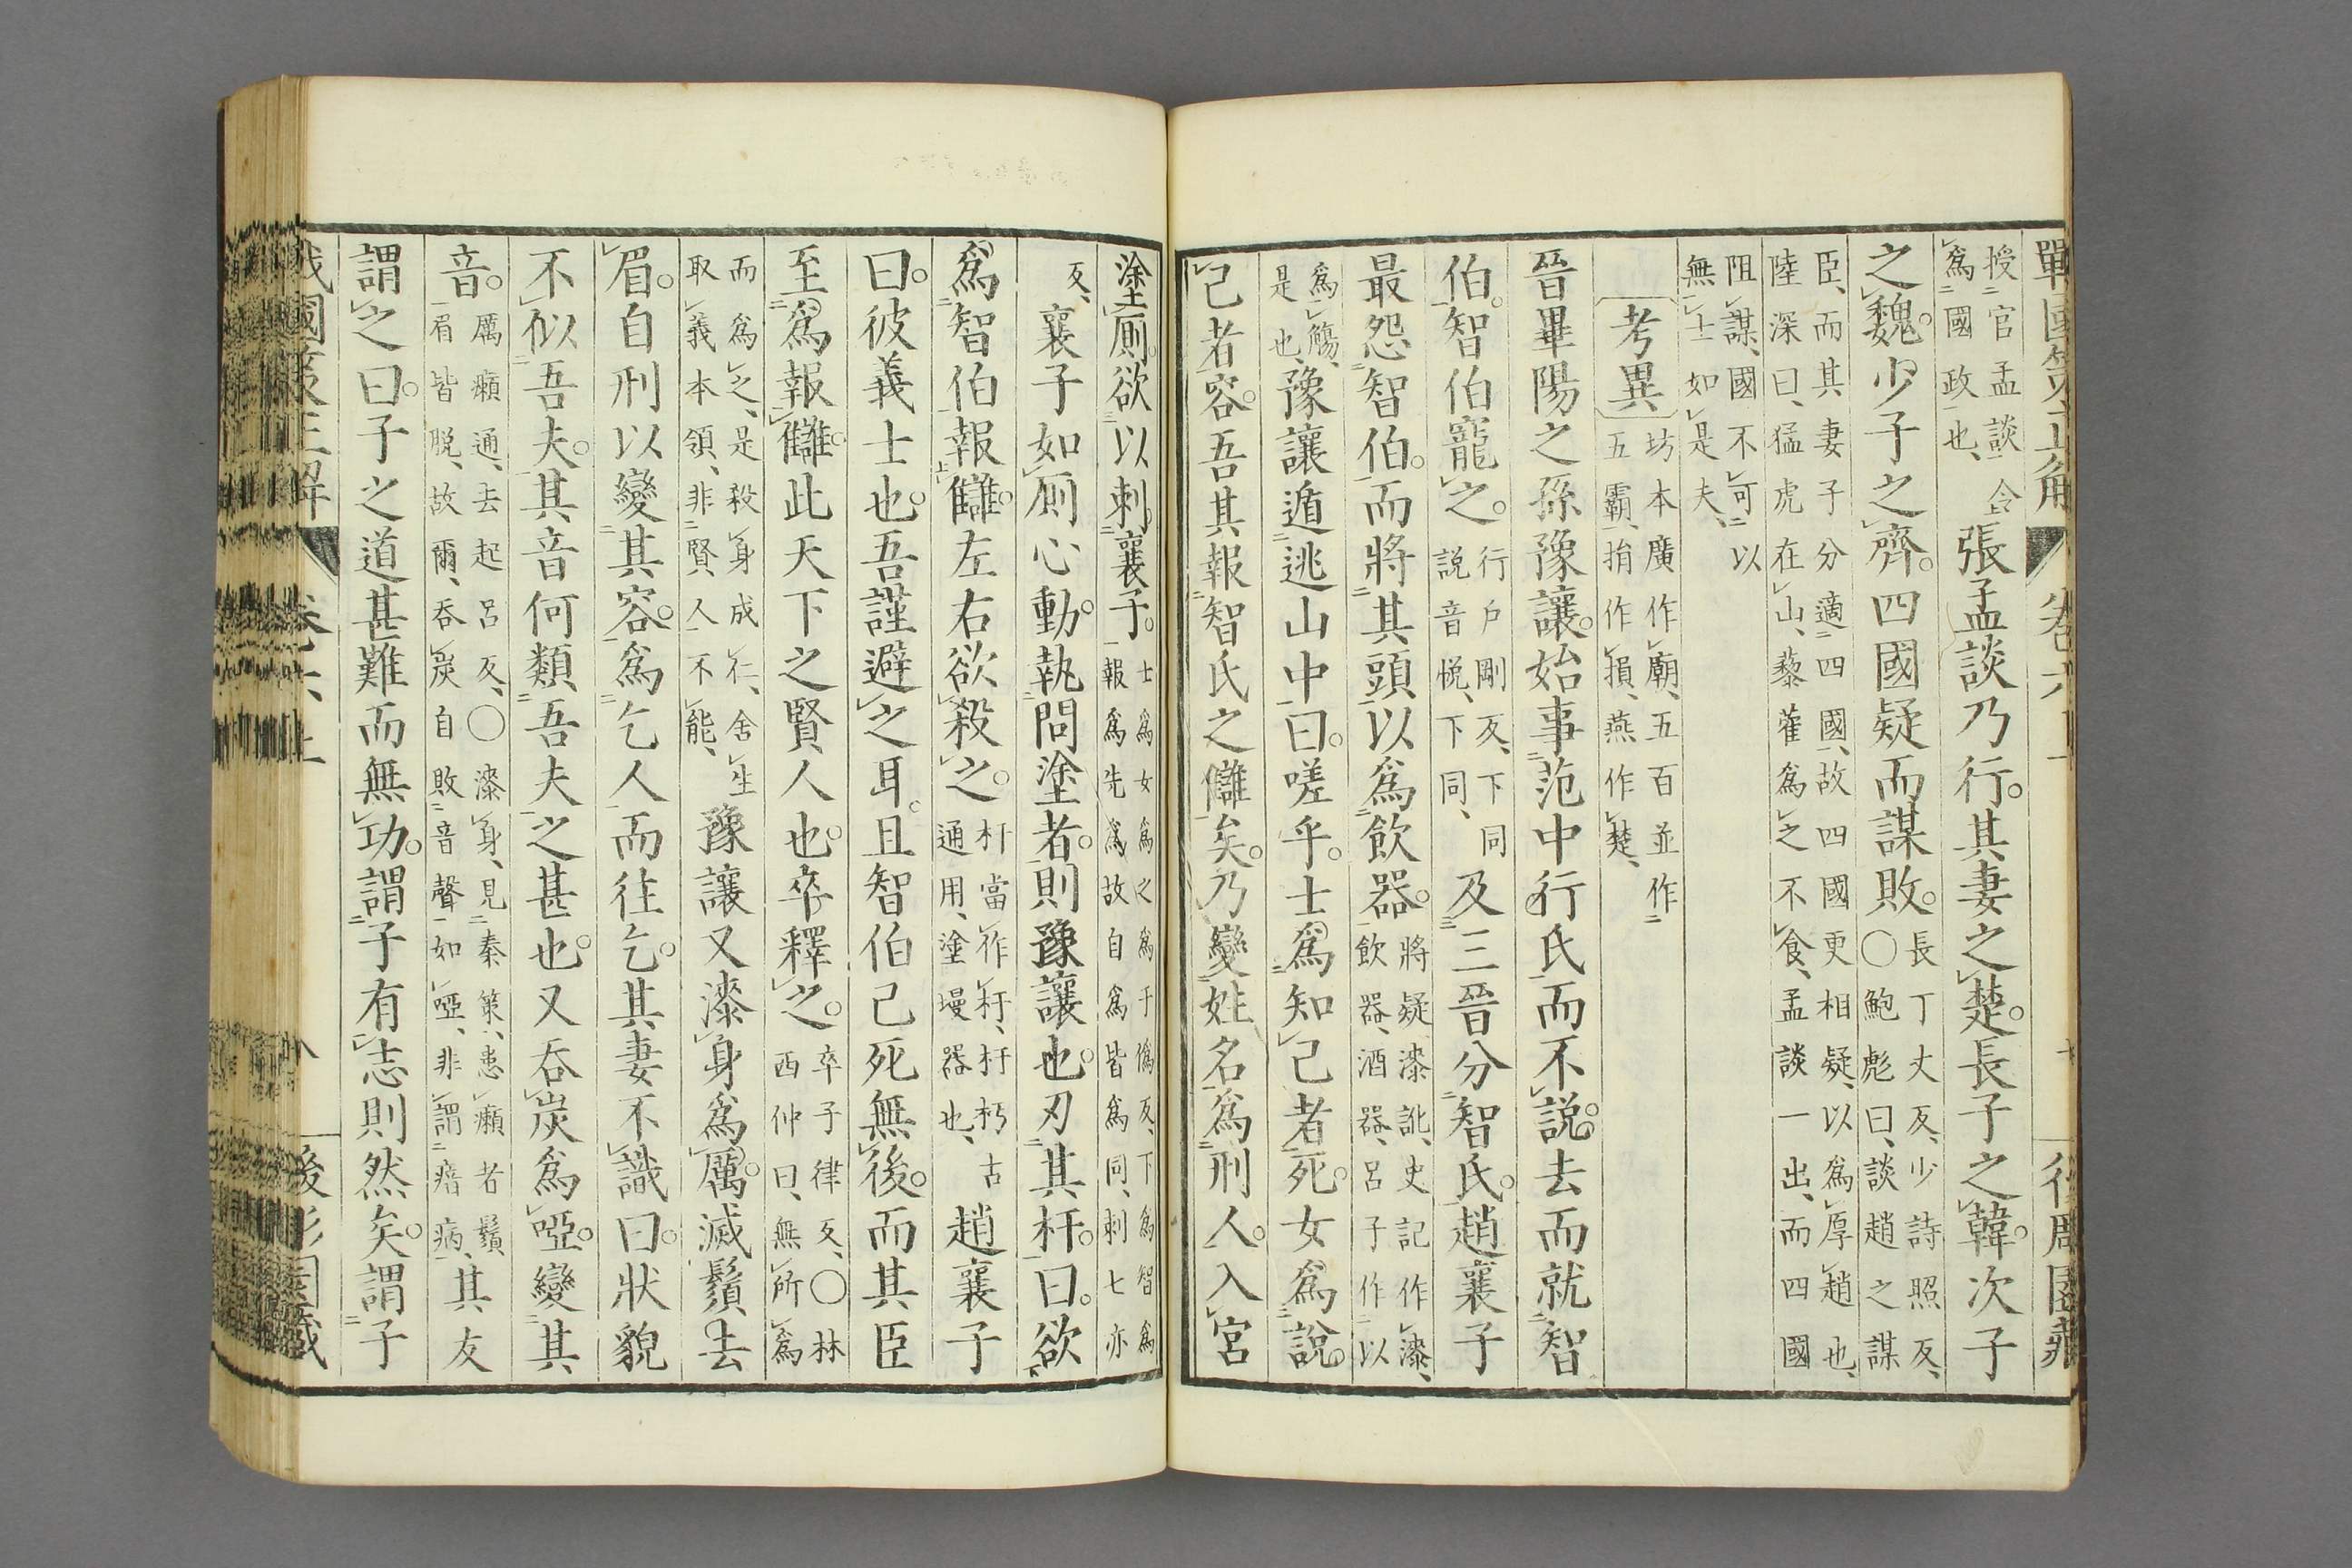 戰國策正解 卷六上 十 後凋園藏
授官孟談令
爲國政也、
張孟談乃行。其妻之楚。長子之韓。次子
之魏。少子之齊。四國疑而謀敗。
長丁丈反、少詩照反、
○鮑彪曰、談趙之謀
臣、而其妻子分適四國、故四國更相疑、以爲厚趙也、
陸深曰、猛虎在山、藜藿爲之不食、孟談一出、而四國
阻謀、國不可以
無士如是夫、
考異
坊本廣作廟、五百並作
五霸、捐作損、燕作楚、
晉畢陽之孫豫讓。始事范中行氏而不說。去而就智
伯。智伯寵之。
行戶剛反、下同
説音悅、下同、
及三晉分智氏。趙襄子
最怨智伯。而將其頭以爲飲器。
將疑漆訛、史記作漆、
飲器、酒器、呂子作以
爲觴、
是也、
豫讓遁逃山中曰。嗟乎。士爲知己者死。女爲說
己者容。吾其報智氏之讎矣。乃變姓名爲刑人。入宮
塗廁。欲以刺襄子。
士爲女爲之爲于僞反、下爲智爲
報爲先爲故自爲皆爲同、刺七亦
反、
襄子如廁心動。執問塗者。則豫讓也。刃其杆。曰。欲
爲智伯報讎。左右欲殺之。
杆當作杇、杇朽古
通用、塗墁器也、
趙襄子
曰。彼義士也。吾謹避之耳。且智伯已死無後。而其臣
至爲報讎。此天下之賢人也。卒釋之。
卒子律反、○林
西仲曰、無所爲
而爲之、是殺身成仁、舍生
取義本領、非賢人不能、
豫讓又漆身爲厲。滅鬚去
眉。自刑以變其容。爲乞人而往乞。其妻不識曰。狀貌
不似吾夫。其音何類吾夫之甚也。又吞炭爲啞。變其
音。
厲癩通、去起呂反、○漆身、見秦策、患癩者鬚、
眉皆脫、故爾、吞炭自敗音聲如啞、非謂瘖病、
其友
謂之曰。子之道甚難而無功。謂子有志則然矣。謂子
戰國策正解 卷六上 後凋園藏